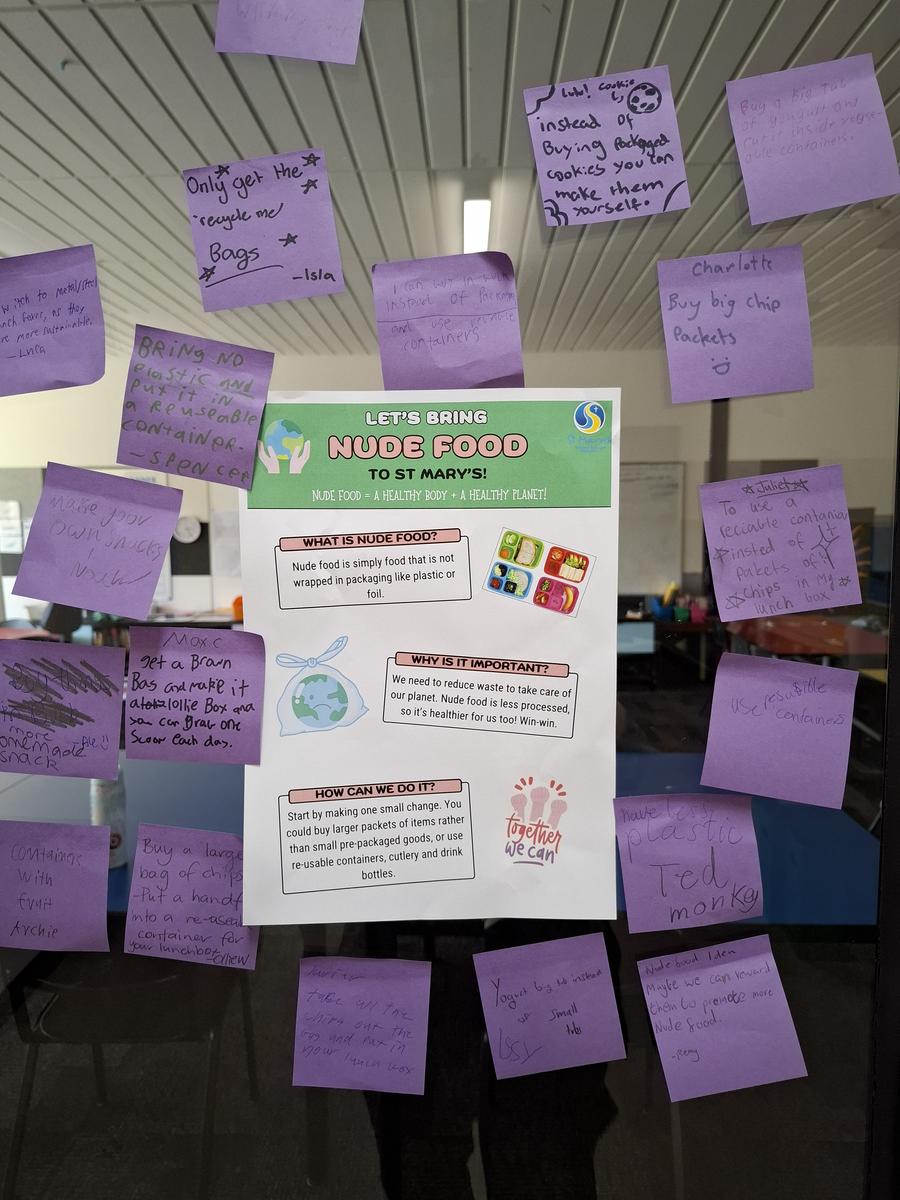 Lulu! Cookie
instead of
Buying Packaged
cookies you can
make them
yourself.
Buy a big tub
of yougurt and
put it inside reuse-
able containers.
Only get the
"recycle me"
Bags
-Isla
witch to metal/steel
nch
as they
re more sustainable.
- Luca
I can buy in bulk
instead of
and use
containers
Charlotte
Buy big chip
Packets
BRING NO
plastic and
put it in
a REUSEABLE
CONTAINER
- SPENCER
LET'S BRING
NUDE FOOD
TO ST MARY'S!
NUDE FOOD = A HEALTHY BODY + A HEALTHY PLANET!
WHAT IS NUDE FOOD?
Nude food is simply food that is not
wrapped in packaging like plastic or
foil.
WHY IS IT IMPORTANT?
We need to reduce waste to take care of
our planet. Nude food is less processed,
so it's healthier for us too! Win-win.
HOW CAN WE DO IT?
Start by making one small change. You
could buy larger packets of items rather
than small pre-packaged goods, or use
re-usable containers, cutlery and drink
bottles.
together
we can
Make your
own snacks
Noah
Juliet
To use a
reciable
insted of
Pakets of
chips in my
lunch box
Max.C
get a Brawn
Bag and make it
a lollie Box and
you can Grab one
scoor each day.
more
omemade
snack
use
containers
have less
plastic
Ted
monkey
containas
with
fruit
Archie
Buy a large
bag of chips
-Put a handf
into a re-useab
container for
your lunchbox
take all the
chips out the
bag and put in
your lunch box
Yogurt big to instead
of small
tubs
Issy
Nude food Idea
Maybe we can reward
them to promote more
Nude food.
-Remy